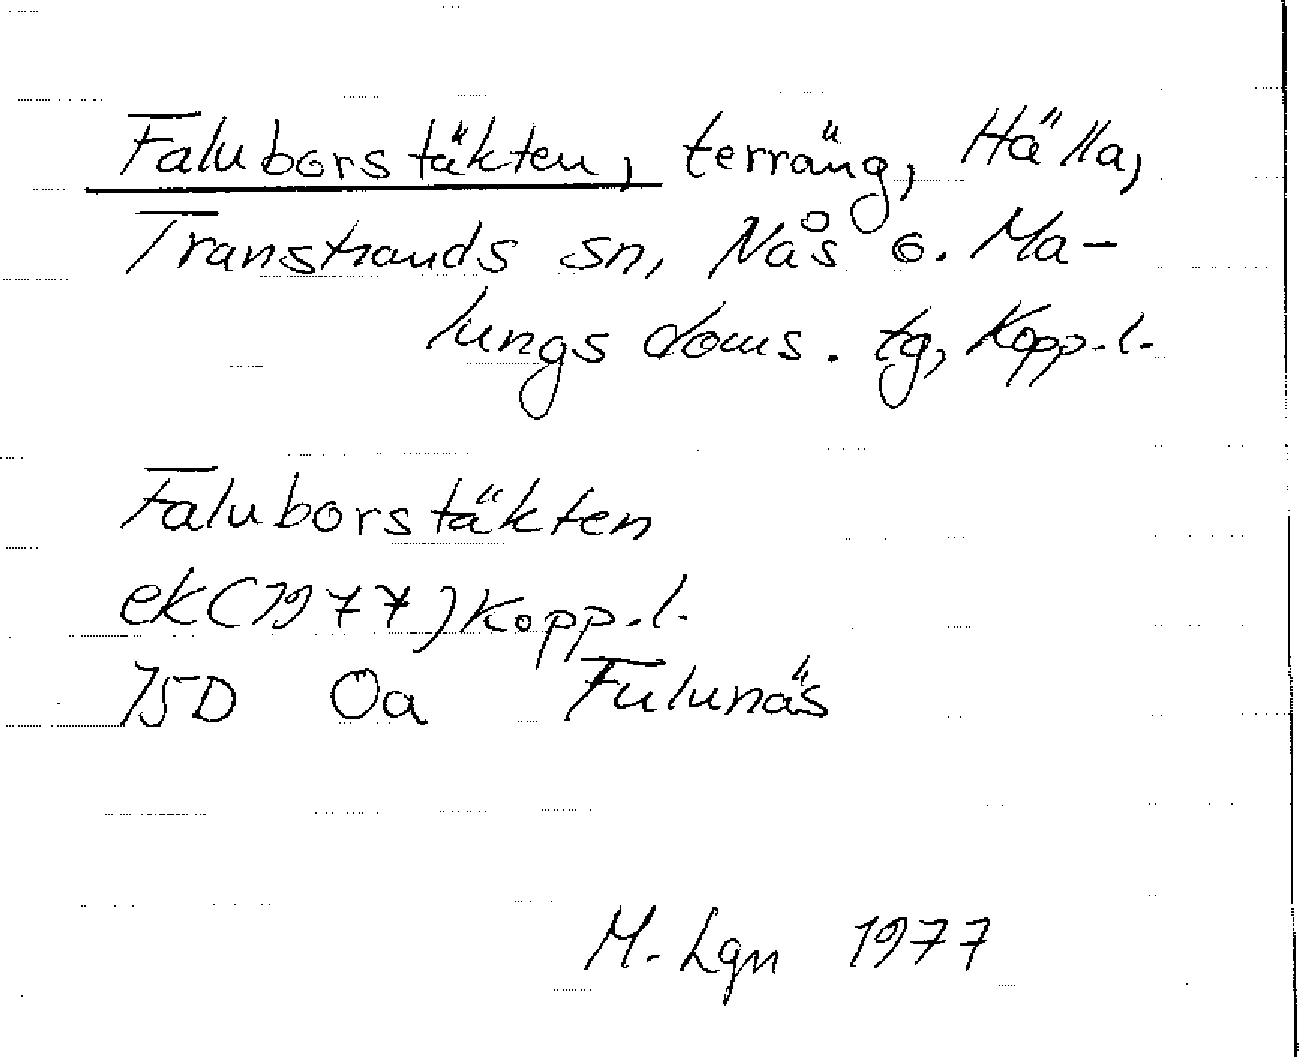 Faluborstäkten, terräng, Hälla,
Transtrands sn, Nås o. Ma-
lungs doms. tg, Kopp.l.
Faluborstäkten
ek(1977)Kopp.l.
15D 0a Fulunäs
M. Lgn 1977